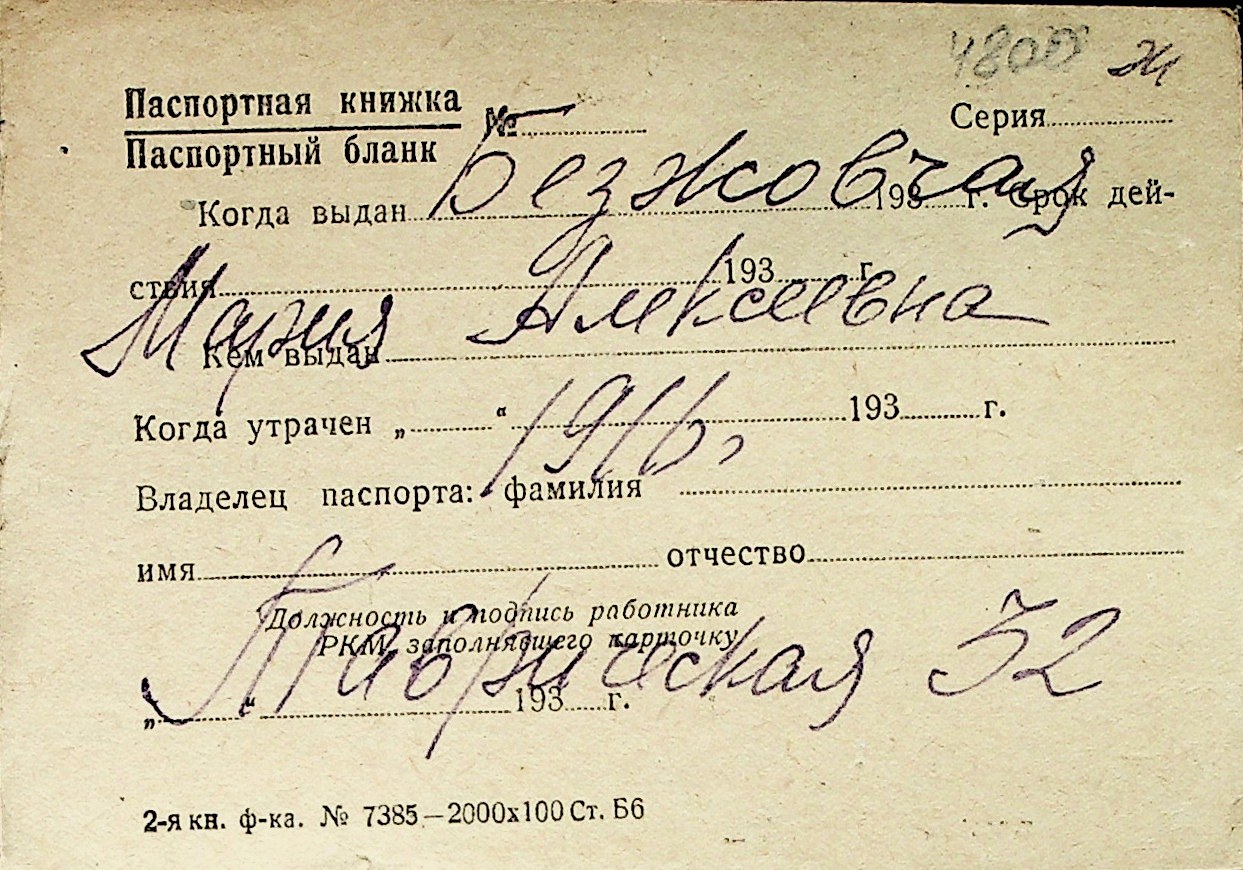 48088 Ж
Паспортная книжка
Паспортный бланк № Серия
Безжовчая
Когда выдан 193 г. Срок дей-
ствия 193 г.
Мария Алексеевна
Кем выдан
Когда утрачен „ “ 193 г.
1916,
Владелец паспорта: фамилия
имя отчество
Должность и подпись работника
РКМ, заполнявшего карточку
Таврическая 32
„ “ 193 г.
2-я кн. ф-ка. № 7385—2000х100 Ст. Б6